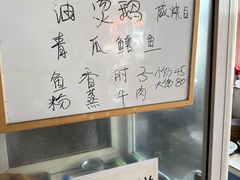 油烫鹅 咸烧白
青瓜鳝鱼
鱼香肘子 小份45
大份80
粉蒸牛肉